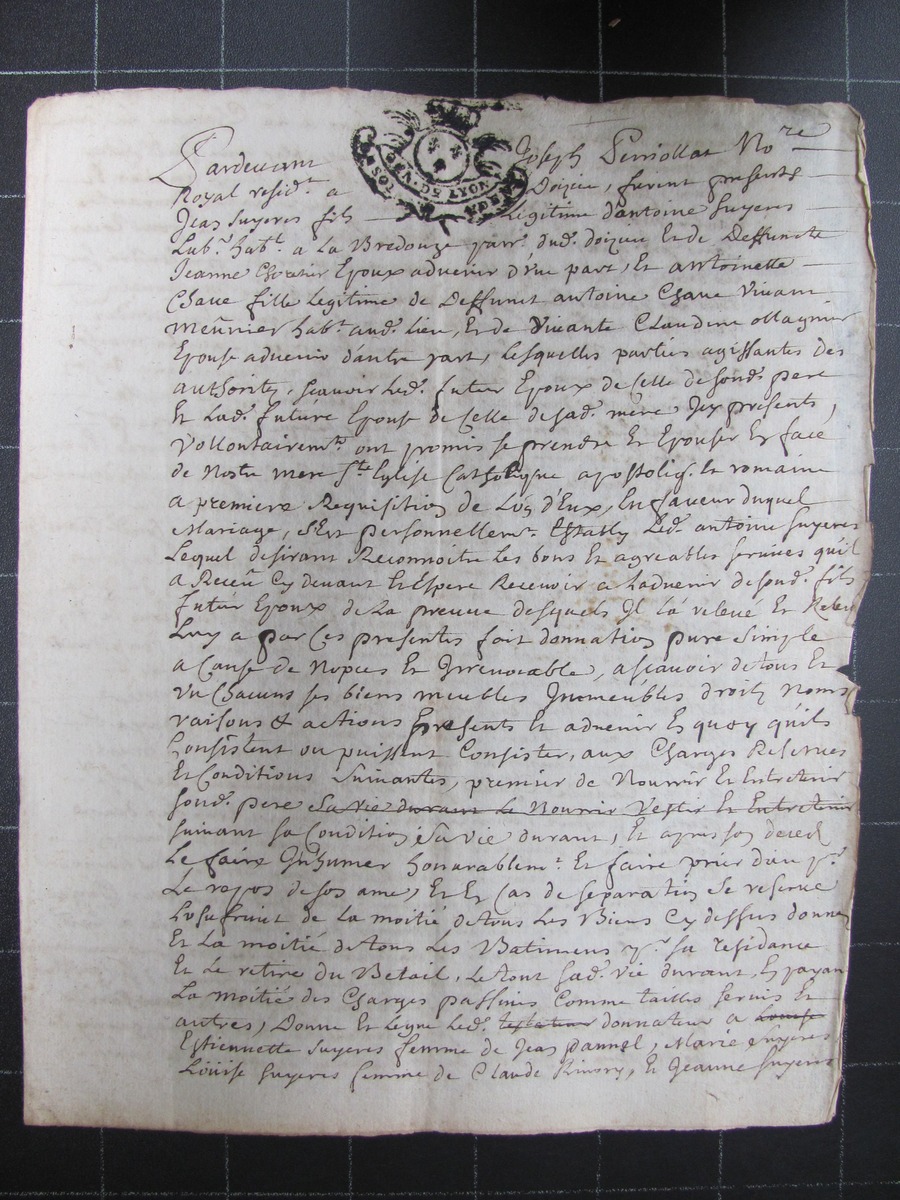 Pardevant Joseph Perriollat No.re
Royal resid.t a Doizieu, furent presents
Jean Suyeres fils Legitime d'antoine Suyeres
Lab.r hab.t a La Bredouze parr. dud. doizieu Et de Deffuncte
Jeanne Epoux advenir d'une part, Et antoinette
Chave fille Legitime de Deffunct antoine Chave Vivant
meûnier hab.t aud. Lieu, Et de Vivante Claudine ollagnier
Epouse advenir d'autre part, Lesquelles parties agissantes des
authorités, scavoir Led. futur Epoux de Celle de sond. pere
Et Lad. future Epouse de Celle de sad. mere Icy presents,
Vollontairem.t ont promis se prendre Et Epouser En face
de Nostre mere S.te Eglise Catholique apostoliq. et romaine
a premiere Requisition de L'un d'Eux, En faveur duquel
Mariage, s'Est personnellem.t Estably Led. antoine Suyeres
Lequel desirant Reconnoitre Les bons Et agreables services qu'il
a Receû Cy devant Et Espere Recevoir a L'advenir de sond. fils
futur Epoux de La preuve desquels Il L'a relevé Et Releve
Luy a par Ces presentes fait donnation pure simple
a Cause de Nopces Et Irrevocable, ascavoir de tous Et
Un Chacuns ses biens meubles Immeubles droits Noms
raisons & actions presents Et advenir En quoy qu'ils
Consistent ou puissent Consister, aux Charges Reserves
Et Conditions Suivantes, premier de Nourrir Et Entretenir
sond. pere sa vie durant Le Nourrir Vestir Et Entretenir
suivant sa Condition sa vie durant, Et apres son deced
Le faire Inhumer honorablem.t Et faire prier dieu p.r
Le repos de son ame, Et En Cas de separation se reserve
L'usufruit de La moitié de tous Les Biens Cy dessus donnés
Et La moitié de tous Les Batimens p.r sa residance
Et Le retire du Betail, Le tout sad. vie durant, En payant
La moitié des Charges passives Comme tailles servis Et
autres, Donne Et Légue Led. testateur donnateur a Louise
Estiennette Suyeres femme de Jean , Marie Suyeres
Louise Suyeres femme de Claude , Et Jeanne Suyeres
GEN.DE.LYON